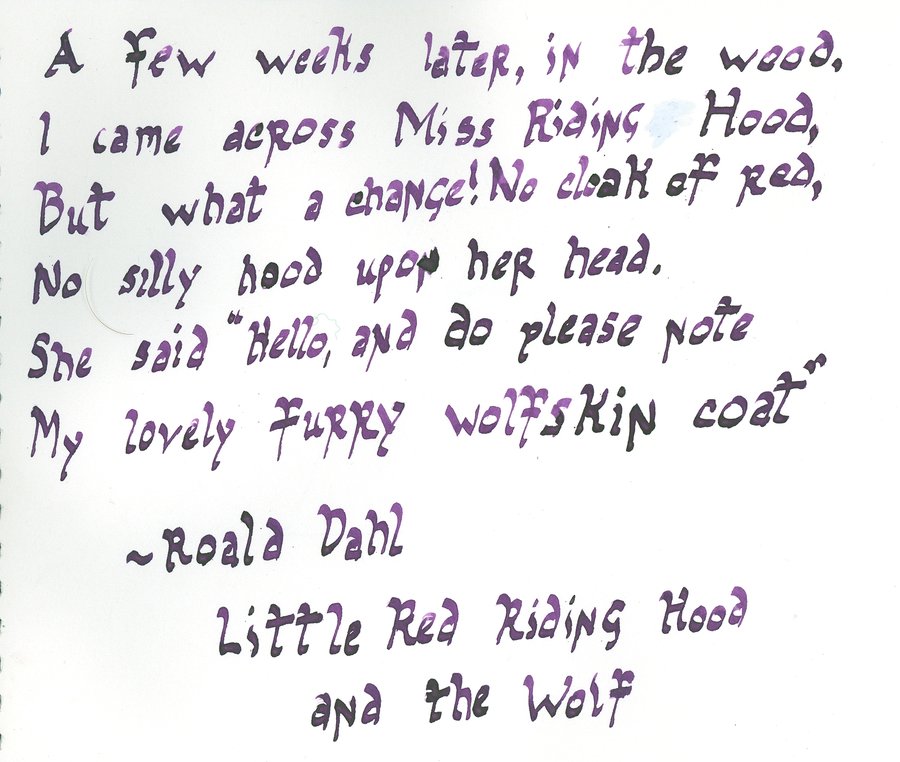 A few weeks later, in the wood,
I came across Miss Riding Hood,
But what a change! No cloak of red,
No silly hood upon her head.
She said "Hello, and do please note
My lovely furry wolfskin coat"
~Roald Dahl
Little Red Riding Hood
and the Wolf